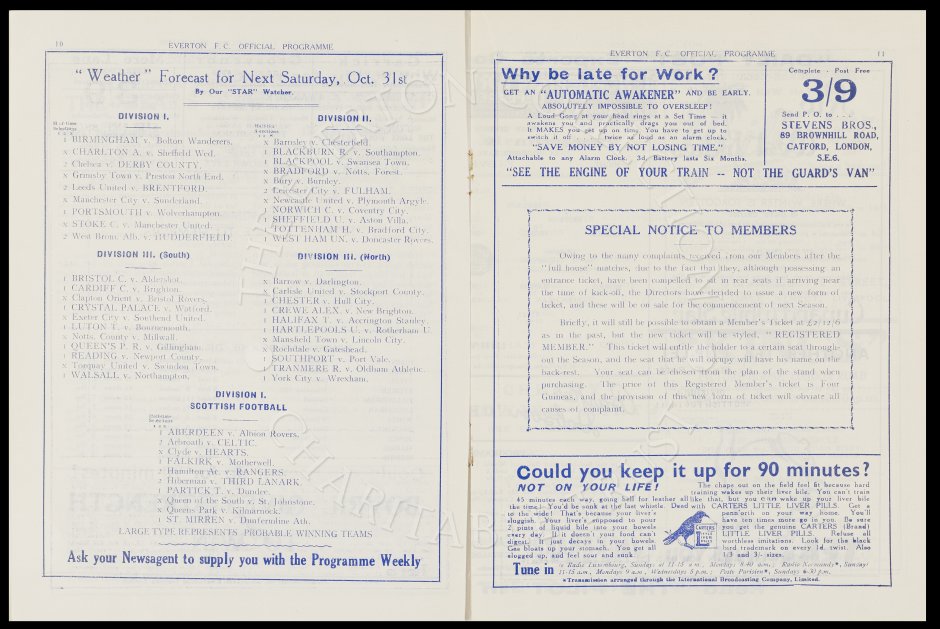 10
EVERTON F.C. OFFICIAL PROGRAMME
"Weather" Forecast for Next Saturday, Oct. 31st
By Our "STAR" Watcher.
DIVISION I.
1 BIRMINGHAM v. Bolton Wanderers.
x CHARLTON A. v. Sheffield Wed.
2 Chelsea v. DERBY COUNTY.
x Grimsby Town v. Preston North End.
2 Leeds United v. BRENTFORD.
x Manchester City v. Sunderland.
1 PORTSMOUTH v. Wolverhampton.
x STOKE C. v. Manchester United.
2 West Brom. Alb. v. HUDDERFIELD
DIVISION II.
x Barnsley v. Chesterfield.
1 BLACKBURN R. v. Southampton.
1 BLACKPOOL v. Swansea Town.
x BRADFORD v. Notts. Forest.
x Bury v. Burnley.
2 Leicester City v. FULHAM.
x Newcastle United v. Plymouth Argyle.
1 NORWICH C. v. Coventry City.
1 SHEFFIELD U. v. Aston Villa.
1 TOTTENHAM H. v. Bradford City.
1 WEST HAM UN. v. Doncaster Rovers.
DIVISION III. (South)
1 BRISTOL C. v. Aldershot.
1 CARDIFF C. v. Brighton.
x Clapton Orient v. Bristol Rovers.
1 CRYSTAL PALACE v. Watford.
x Exeter City v. Southend United.
1 LUTON T. v. Bournemouth.
x Notts. County v. Millwall.
1 QUEEN'S P. R. v. Gillingham.
1 READING v. Newport County.
x Torquay United v. Swindon Town.
1 WALSALL v. Northampton.
DIVISION III. (North)
x Barrow v. Darlington.
x Carlisle United v. Stockport County.
1 CHESTER v. Hull City.
1 CREWE ALEX. v. New Brighton.
1 HALIFAX T. v. Accrington Stanley.
1 HARTLEPOOLS U. v. Rotherham U.
x Mansfield Town v. Lincoln City.
x Rochdale v. Gateshead.
1 SOUTHPORT v. Port Vale.
1 TRANMERE R. v. Oldham Athletic.
1 York City v. Wrexham.
DIVISION I.
SCOTTISH FOOTBALL
1 ABERDEEN v. Albion Rovers.
2 Arbroath v. CELTIC.
x Clyde v. HEARTS.
1 FALKIRK v. Motherwell.
2 Hamilton Ac. v. RANGERS.
2 Hibernian v. THIRD LANARK.
1 PARTICK T. v. Dundee.
x Queen of the South v. St. Johnstone.
x Queens Park v. Kilmarnock.
1 ST. MIRREN v. Dunfermline Ath.
LARGE TYPE REPRESENTS PROBABLE WINNING TEAMS
Ask your Newsagent to supply you with the Programme Weekly
EVERTON F.C. OFFICIAL PROGRAMME
11
Why be late for Work?
GET AN "AUTOMATIC AWAKENER" AND BE EARLY.
ABSOLUTELY IMPOSSIBLE TO OVERSLEEP!
A Loud Gong at your head rings at a Set Time — it
awakens you and practically drags you out of bed.
It MAKES you get up on time. You have to get up to
switch it off . . . twice as loud as an alarm clock.
"SAVE MONEY BY NOT LOSING TIME."
Attachable to any Alarm Clock. 3d. Battery lasts Six Months.
Complete - Post Free
3/9
Send P.O. to . . .
STEVENS BROS.,
89 BROWNHILL ROAD,
CATFORD, LONDON,
S.E.6.
"SEE THE ENGINE OF YOUR TRAIN -- NOT THE GUARD'S VAN"
SPECIAL NOTICE TO MEMBERS
Owing to the many complaints received from our Members after the
"full house" matches, due to the fact that they, although possessing an
entrance ticket, have been compelled to sit in rear seats if arriving near
the time of kick-off, the Directors have decided to issue a new form of
ticket, and these will be on sale for the commencement of next Season.
Briefly, it will still be possible to obtain a Member's Ticket at £2/12/6
as in the past, but the new ticket will be styled, "REGISTERED
MEMBER." This ticket will entitle the holder to a certain seat through-
out the Season, and the seat that he will occupy will have his name on the
back-rest. Your seat can be chosen from the plan of the stand when
purchasing. The price of this Registered Member's ticket is Four
Guineas, and the provision of this new form of ticket will obviate all
causes of complaint.
Could you keep it up for 90 minutes?
NOT ON YOUR LIFE!
The chaps out on the field feel fit because hard
training wakes up their liver bile. You can't train
45 minutes each way, going hell for leather all like that, but you can wake up your liver bile
the time! You'd be sunk at the last whistle. Deed with CARTERS LITTLE LIVER PILLS. Get a
to the wide! That's because your liver's
sluggish. Your liver's supposed to pour
2 pints of liquid bile into your bowels
every day. If it doesn't your food can't
digest. It just decays in your bowels.
Gas bloats up your stomach. You get all
slogged up, and feel sour and sunk.
CARTERS
LITTLE
LIVER
PILLS
penn'orth on your way home. You'll
have ten times more go in you. Be sure
you get the genuine CARTERS (Brand)
LITTLE LIVER PILLS. Refuse all
worthless imitations. Look for the black
bird trademark on every 1d. twist. Also
1/3 and 3/- sizes.
Tune in
: Radio Luxembourg, Sundays at 11-15 a.m., Mondays 8-40 a.m.; Radio Normandy*, Sundays
11-15 a.m., Mondays 9 a.m., Wednesdays 5 p.m.; Poste Parisien*, Sundays 6-30 p.m.
*Transmission arranged through the International Broadcasting Company, Limited.